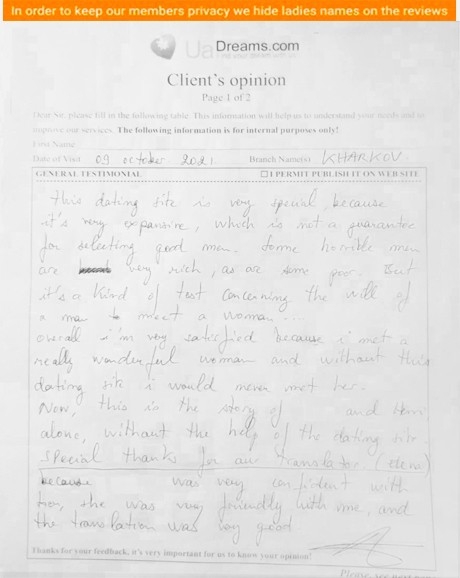 In order to keep our members privacy we hide ladies names on the reviews
UaDreams.com
Client's opinion
Page 1 of 2
Dear Sir, please fill in the following table. This information will help us to understand your needs and to
improve our services. The following information is for internal purposes only!
First Name
Date of Visit 09 october 2021 Branch Name(s) KHARKOV
GENERAL TESTIMONIAL ☐I PERMIT PUBLISH IT ON WEB SITE
this dating site is very special, because
it's very expansive, which is not a guarantee
for selecting good men. Some horrible men
are very rich, as are some poor. But
it's a kind of test concerning the will of
a man to meet a woman....
overall i'm very satisfied because i met a
really wonderful woman and without this
dating site i would never met her.
Now, this is the story of and
alone, without the help of the dating site
special thanks for our translator
because was very confident with
her, she was very friendly with me, and
the translation was very good
Thanks for your feedback, it's very important for us to know your opinion!